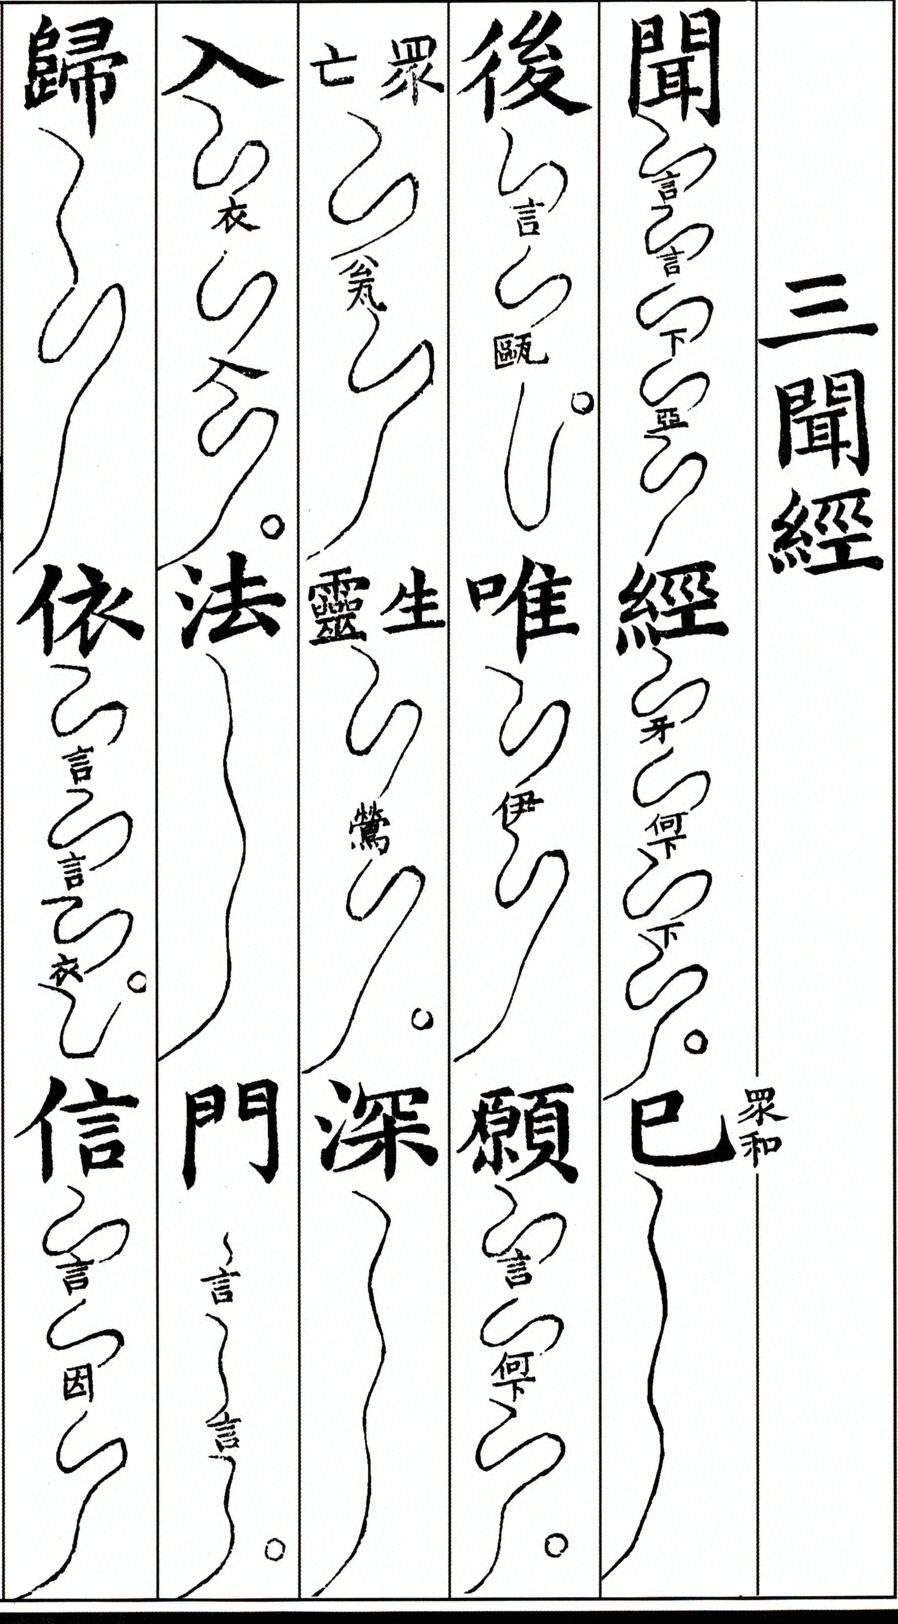 三聞經
聞言言下亞經牙何下下。已眾和
後言甌。唯伊願言何下。
眾亡翁生靈鶯。深
入衣入。法門言言。
歸依言言衣。信言因